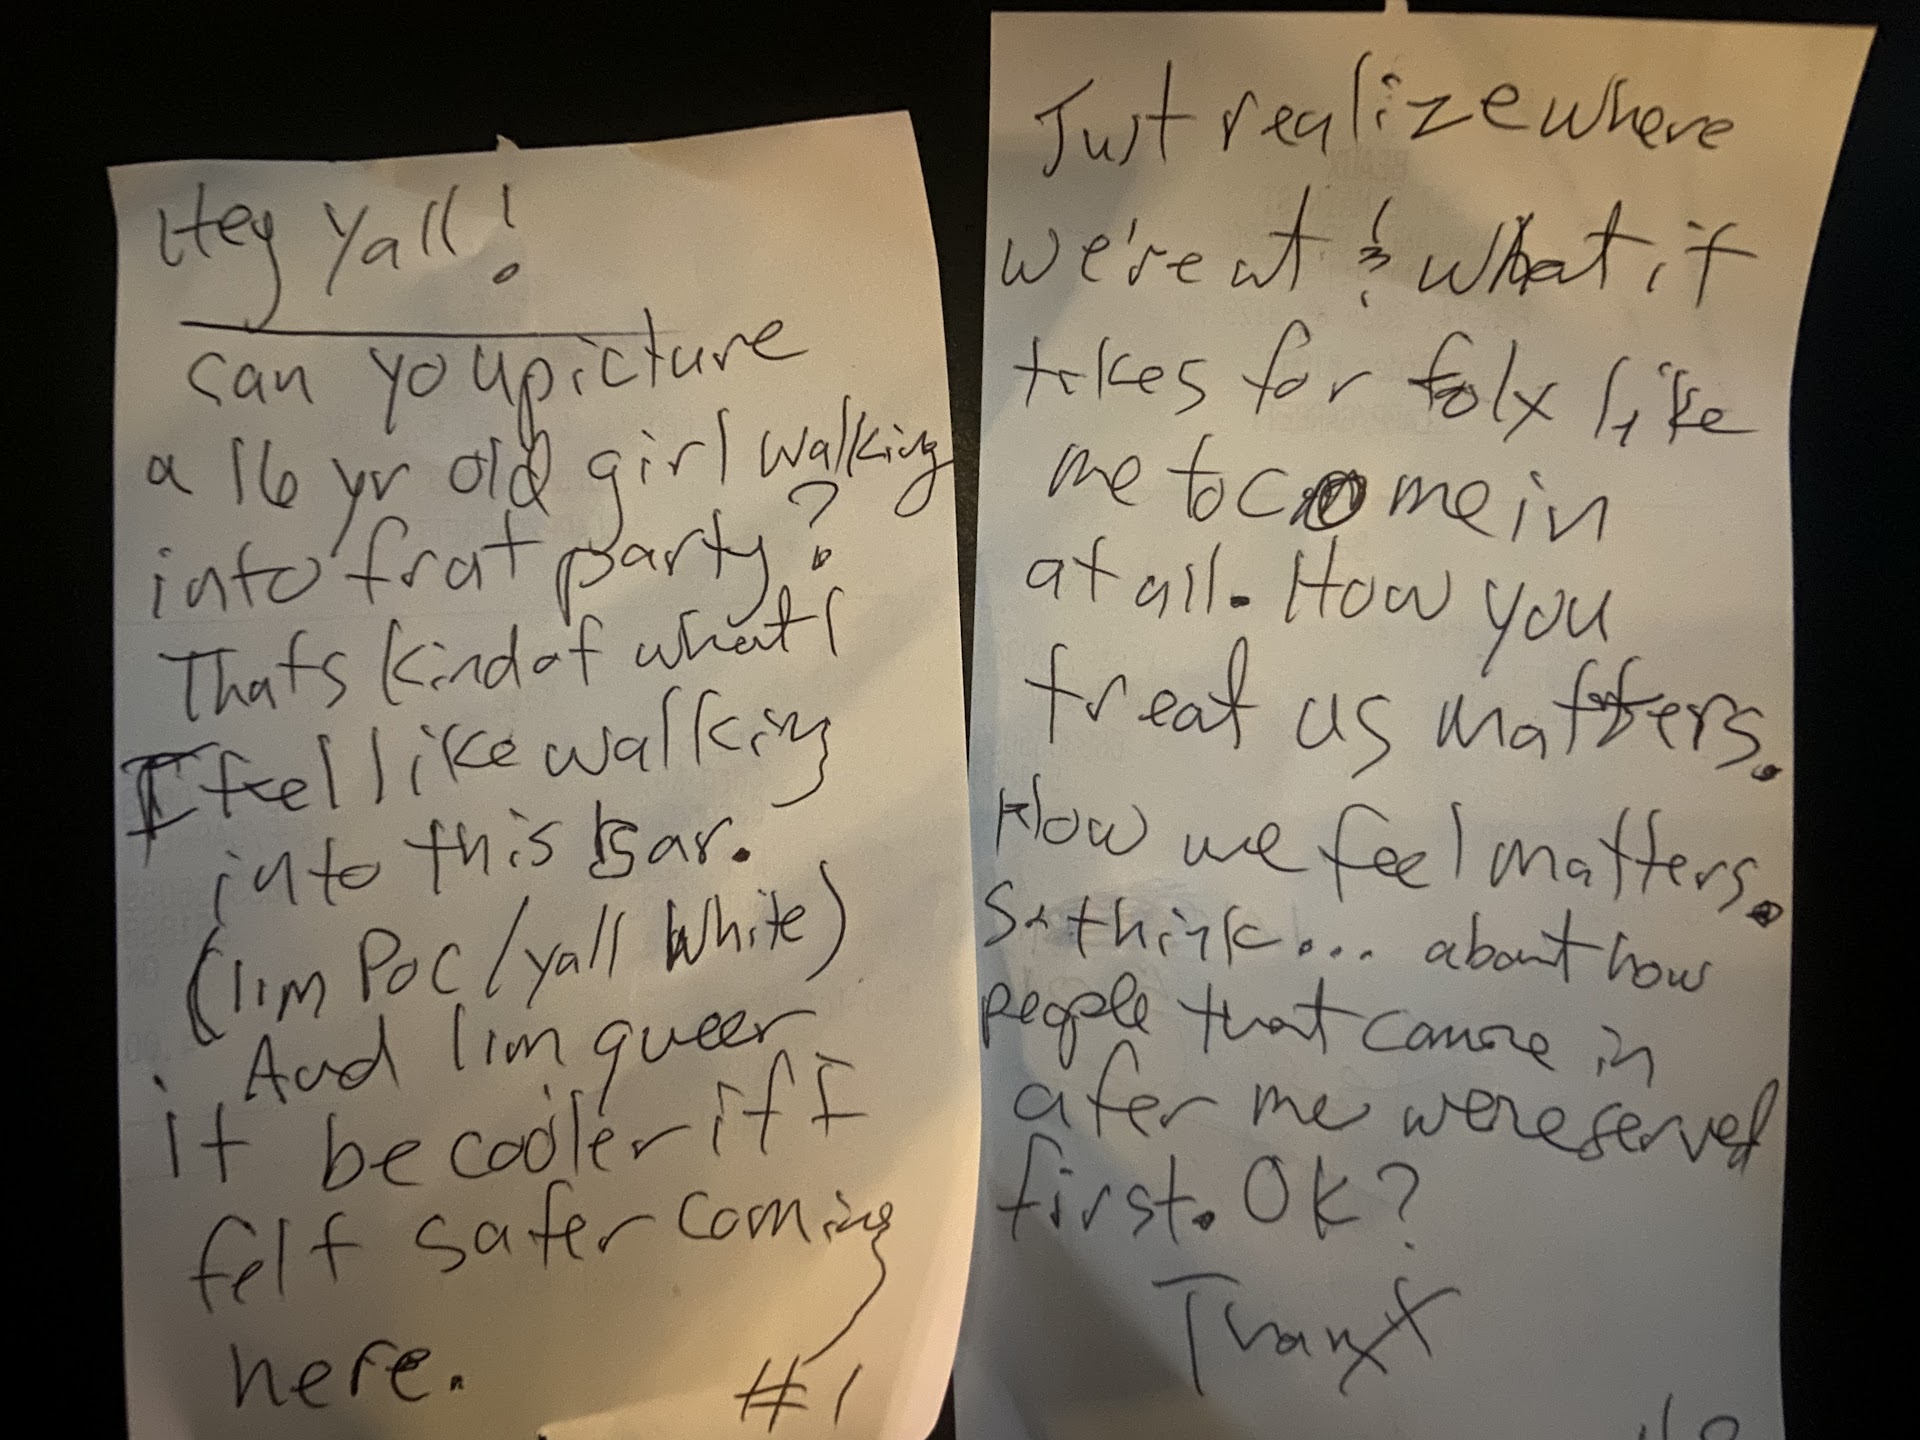 Hey Yall!
can you picture
a 16 yr old girl walking
into frat party?
Thats kind of what I
I feel like walking
into this bar.
(I im POC/yall White)
And I im queer
it be cooler if I
felt safer coming
here.
#1
Just realize where
we're at & what it
takes for folx like
me to come in
at all. How you
treat us matters.
How we feel matters.
So think... about how
people that came in
afer me were served
first. Ok?
ThanX